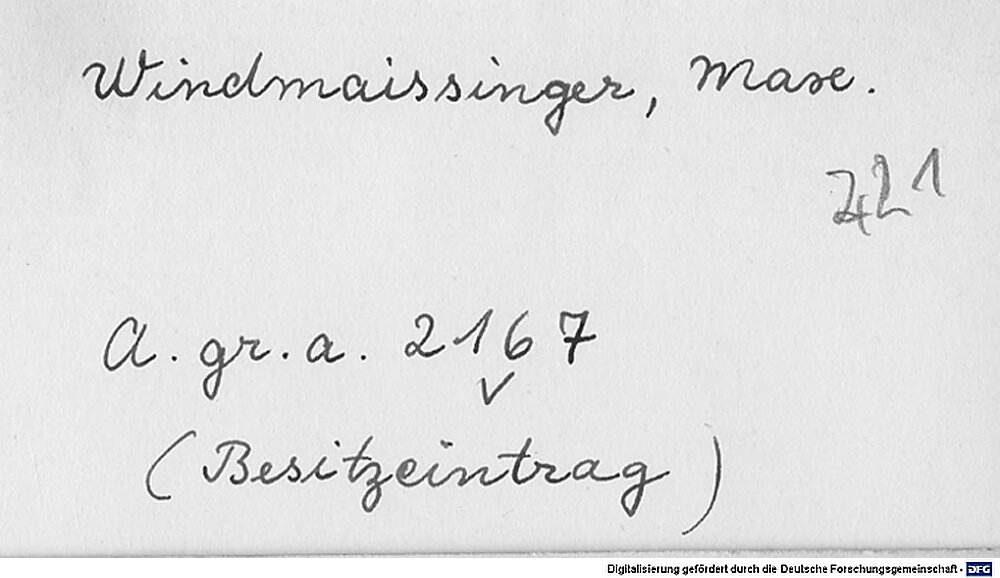 Windmaissinger, Max.
421
A. gr. a. 2167
(Besitzeintrag)
Digitalisierung gefördert durch die Deutsche Forschungsgemeinschaft - DFG